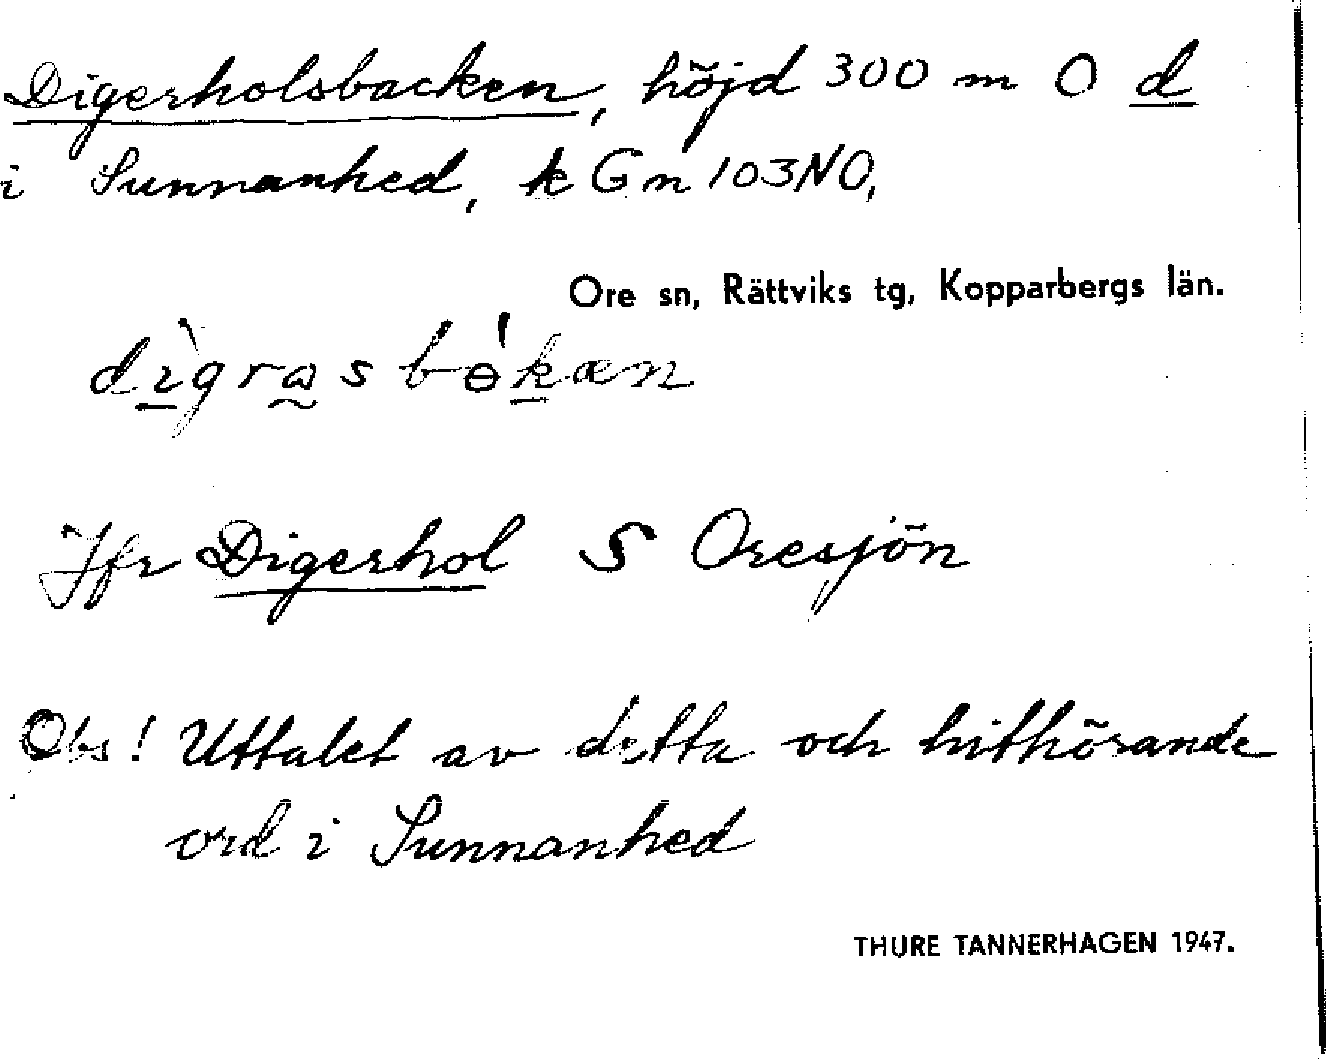 Digerholsbacken, höjd 300 m O d
i Sunnanhed, k Gm 103 NO,
Ore sn, Rättviks tg, Kopparbergs län.
Jfr Digerhol S Oresjön
Obs! Uttalet av detta och hithörande
ord i Sunnanhed
THURE TANNERHAGEN 1947.